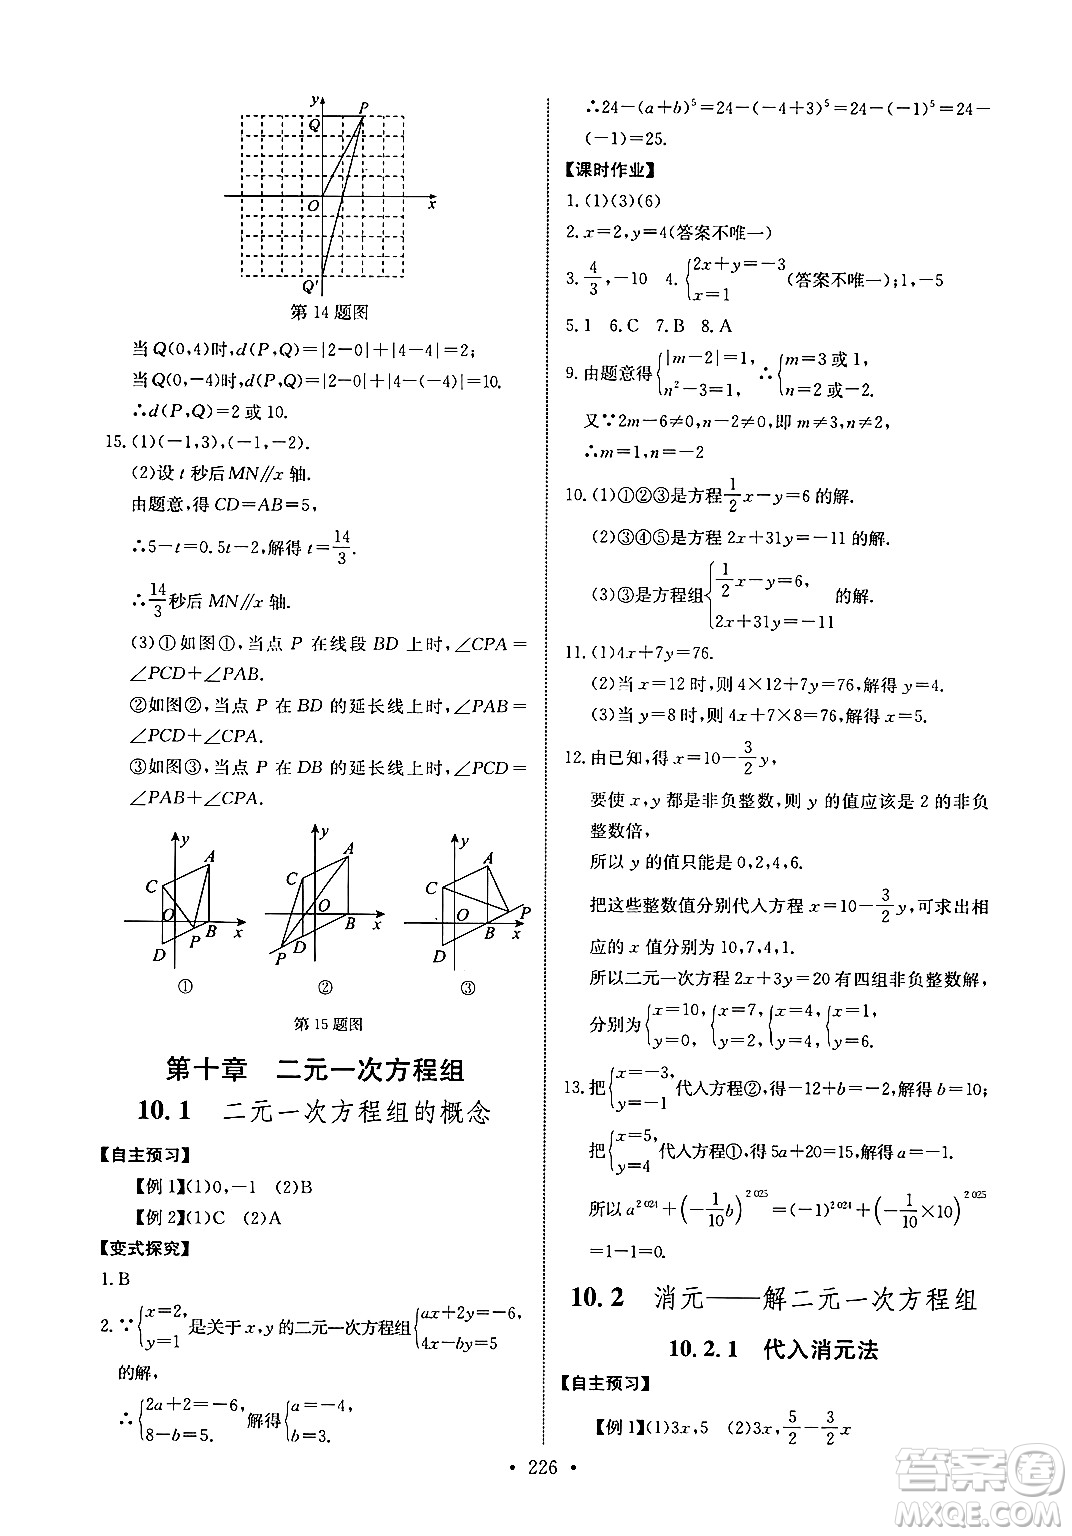 y
Q
P
O
x
Q′
第14题图
当Q(0,4)时,d(P,Q)=|2-0|+|4-4|=2;
当Q(0,-4)时,d(P,Q)=|2-0|+|4-(-4)|=10.
∴d(P,Q)=2或10.
15.(1)(-1,3),(-1,-2).
(2)设t秒后MN//x轴.
由题意,得CD=AB=5,
∴5-t=0.5t-2,解得t=14/3.
∴14/3秒后MN//x轴.
(3)①如图①,当点P在线段BD上时,∠CPA=
∠PCD+∠PAB.
②如图②,当点P在BD的延长线上时,∠PAB=
∠PCD+∠CPA.
③如图③,当点P在DB的延长线上时,∠PCD=
∠PAB+∠CPA.
y A C O P B x D
①
y A C O B x P D
②
y A C O P B x D
③
第15题图
第十章 二元一次方程组
10.1 二元一次方程组的概念
【自主预习】
【例1】(1)0,-1 (2)B
【例2】(1)C (2)A
【变式探究】
1.B
2.∵{x=2, y=1是关于x,y的二元一次方程组{ax+2y=-6, 4x-by=5
的解,
∴{2a+2=-6, 8-b=5. 解得{a=-4, b=3.
∴24-(a+b)⁵=24-(-4+3)⁵=24-(-1)⁵=24-
(-1)=25.
【课时作业】
1.(1)(3)(6)
2.x=2,y=4(答案不唯一)
3.4/3,-10 4.{2x+y=-3 x=1(答案不唯一);1,-5
5.1 6.C 7.B 8.A
9.由题意得{|m-2|=1, n²-3=1, ∴{m=3或1, n=2或-2.
又∵2m-6≠0,n-2≠0,即m≠3,n≠2,
∴m=1,n=-2
10.(1)①②③是方程1/2x-y=6的解.
(2)③④⑤是方程2x+31y=-11的解.
(3)③是方程组{1/2x-y=6, 2x+31y=-11的解.
11.(1)4x+7y=76.
(2)当x=12时,则4×12+7y=76,解得y=4.
(3)当y=8时,则4x+7×8=76,解得x=5.
12.由已知,得x=10-3/2y,
要使x,y都是非负整数,则y的值应该是2的非负
整数倍,
所以y的值只能是0,2,4,6.
把这些整数值分别代入方程x=10-3/2y,可求出相
应的x值分别为10,7,4,1.
所以二元一次方程2x+3y=20有四组非负整数解,
分别为{x=10, y=0. {x=7, y=2. {x=4, y=4. {x=1, y=6.
13.把{x=-3, y=-1代入方程②,得-12+b=-2,解得b=10;
把{x=5, y=4代入方程①,得5a+20=15,解得a=-1.
所以a²⁰²⁴+(-1/10b)²⁰²⁵=(-1)²⁰²⁴+(-1/10×10)²⁰²⁵
=1-1=0.
10.2 消元——解二元一次方程组
10.2.1 代入消元法
【自主预习】
【例1】(1)3x,5 (2)5/2-3/2x
• 226 •
答案圈
MXQE.COM